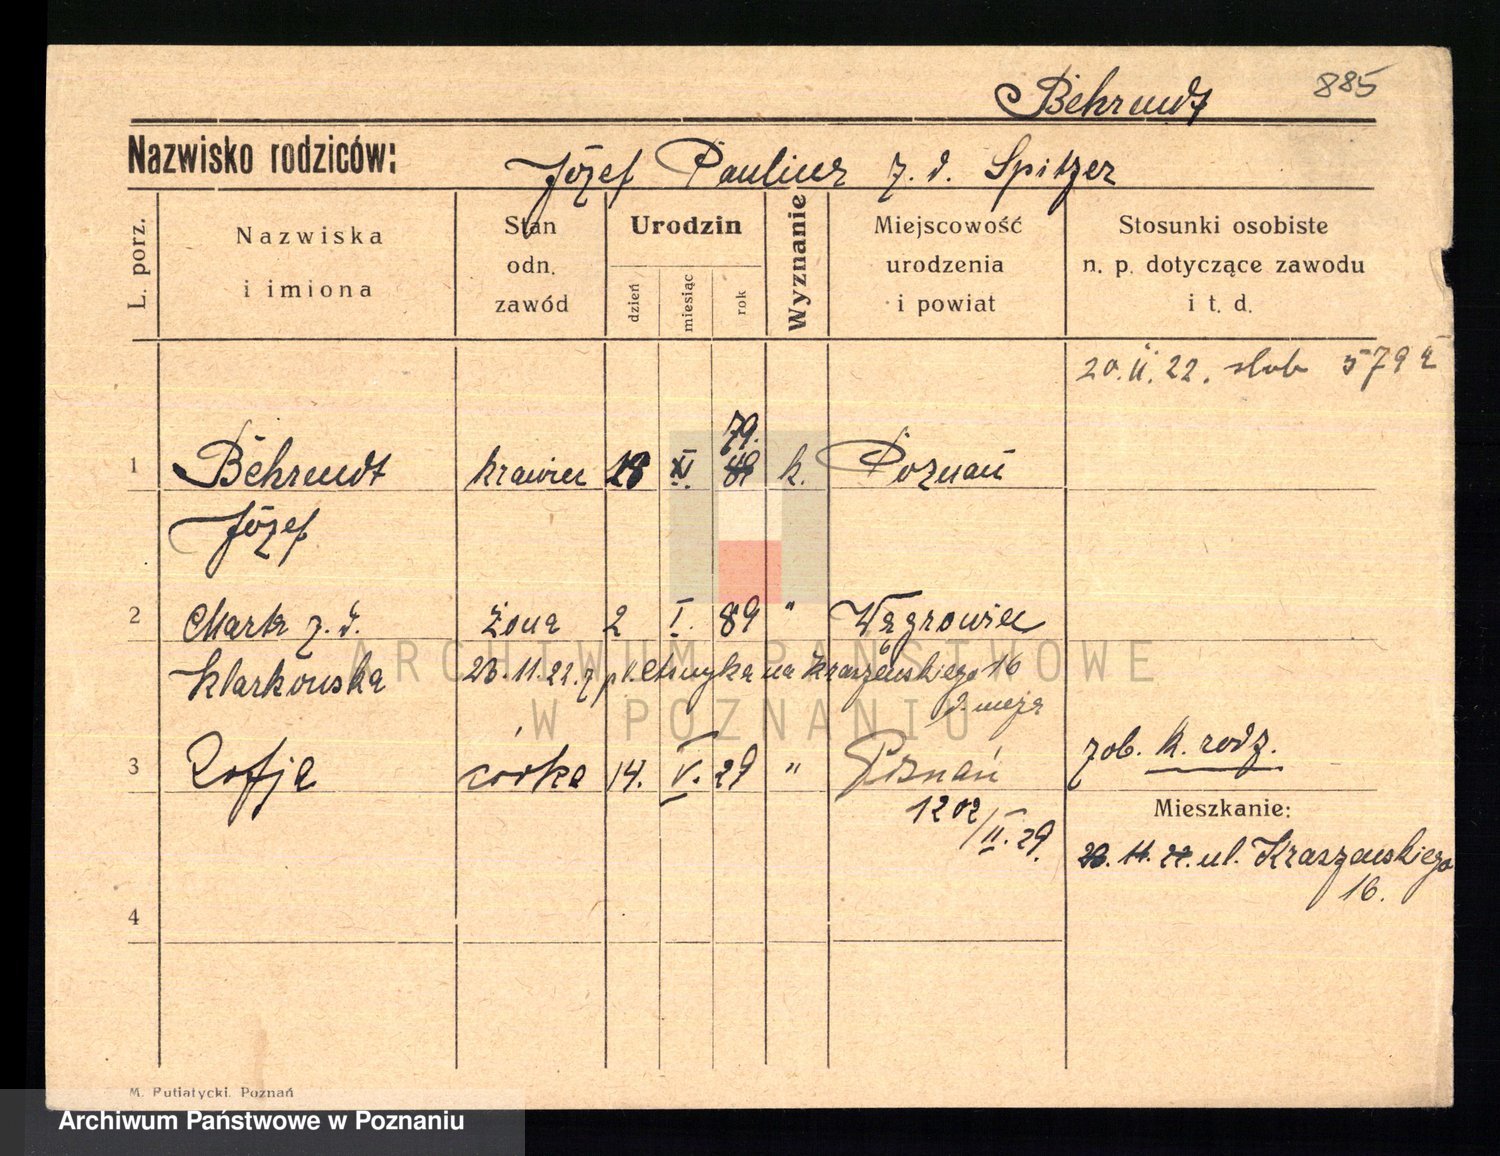 Behrendt 885
Nazwisko rodziców: Józef Paulina z. d. Spitzer
L. porz.
Nazwiska i imiona
Stan odn. zawód
Urodzin
dzień
miesiąc
rok
Wyznanie
Miejscowość urodzenia i powiat
Stosunki osobiste n. p. dotyczące zawodu i t. d.
20. II. 22. slub
79.
1 Behrendt krawiec 18 XI. k. Poznań
Józef
2 z. d. żona 2 I. 89 " Wągrowiec
23. 11. 22. z pl. na Kraszewskiego 16
3 Zofja córka 14. V. 29 " Poznań zob. k. rodz.
1202/II. 29.
Mieszkanie:
23. 11. 22 ul. Kraszewskiego
16.
4
M. Putiatycki. Poznań
ARCHIWUM PAŃSTWOWE
W POZNANIU
Archiwum Państwowe w Poznaniu